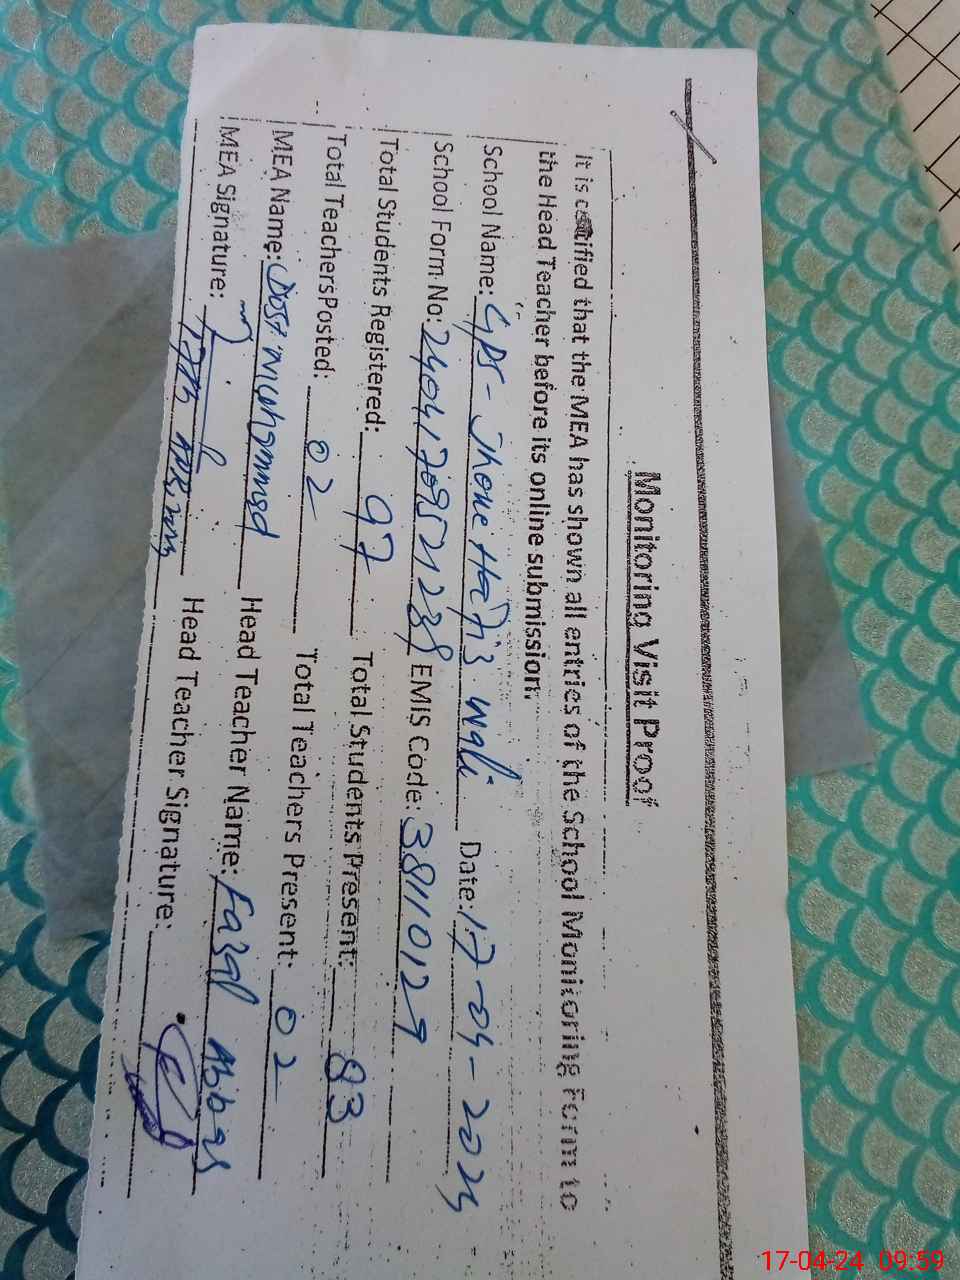 Monitoring Visit Proof
It is certified that the MEA has shown all entries of the School Monitoring Form to
the Head Teacher before its online submission.
School Name: GPS - Jhoke Hafiz wali Date: 17-04-2024
School Form No: EMIS Code: 38110129
Total Students Registered: 97 Total Students Present: 83
Total TeachersPosted: 02 Total Teachers Present: 02
MEA Name: Dost Muhammad Head Teacher Name: Fazal Abbas
MEA Signature: Head Teacher Signature:
17-04-24 09:59